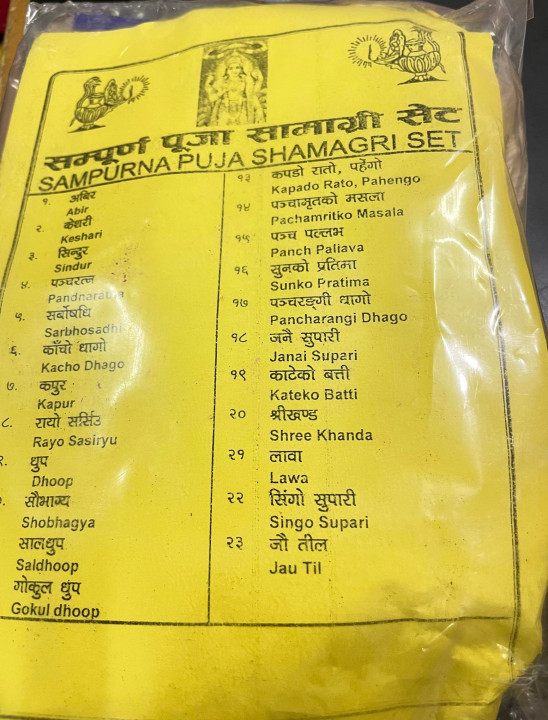 सम्पूर्ण पूजा सामाग्री सेट
SAMPURNA PUJA SHAMAGRI SET
१. अबिर
Abir
२. केशरी
Keshari
३. सिन्दुर
Sindur
४. पञ्चरत्न
Pandnaratna
५. सर्बोषधि
Sarbhosadhi
६. काँचो धागो
Kacho Dhago
७. कपुर
Kapur
८. रायो सर्सिउ
Rayo Sasiryu
९. धुप
Dhoop
सौभाग्य
Shobhagya
सालधुप
Saldhoop
गोकुल धुंप
Gokul dhoop
१३ कपडो रातो, पहेंगो
Kapado Rato, Pahengo
१४ पञ्चामृतको मसला
Pachamritko Masala
१५ पञ्च पल्लभ
Panch Paliava
१६ सुनको प्रतिमा
Sunko Pratima
१७ पञ्चरङ्गी धागो
Pancharangi Dhago
१८ जनै सुपारी
Janai Supari
१९ काटेको बत्ती
Kateko Batti
२० श्रीखण्ड
Shree Khanda
२१ लावा
Lawa
२२ सिंगो सुपारी
Singo Supari
२३ जौ तील
Jau Til